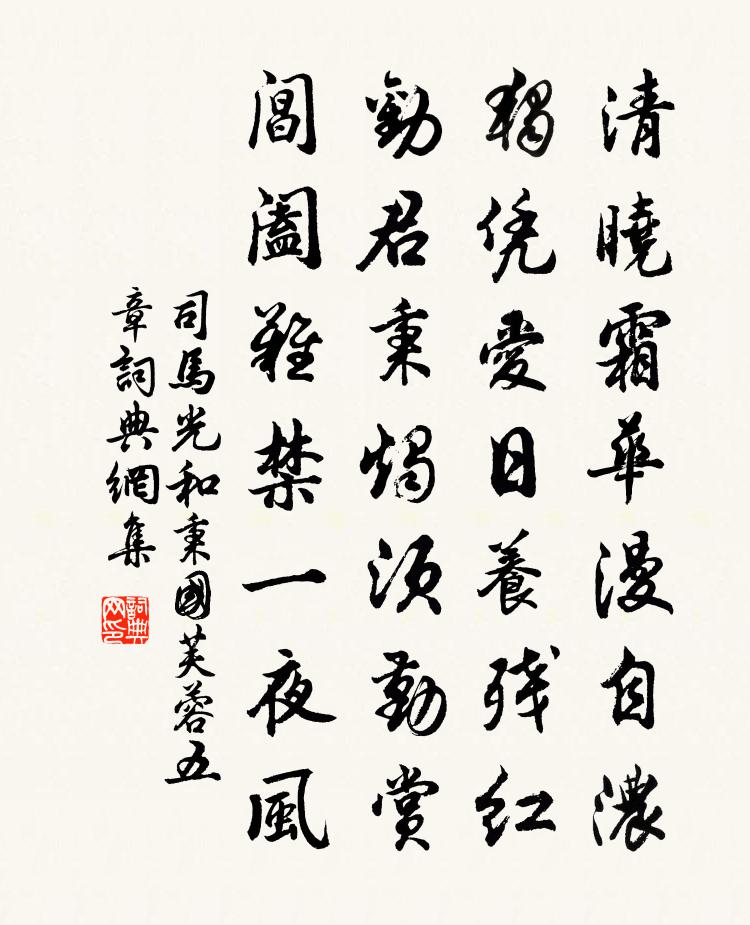 清曉霜華漫自濃
獨凭愛日養殘紅
勸君秉燭須勤賞
閶闔難禁一夜風
司馬光和秉國芙蓉五
章詞典網集
詞典
网印